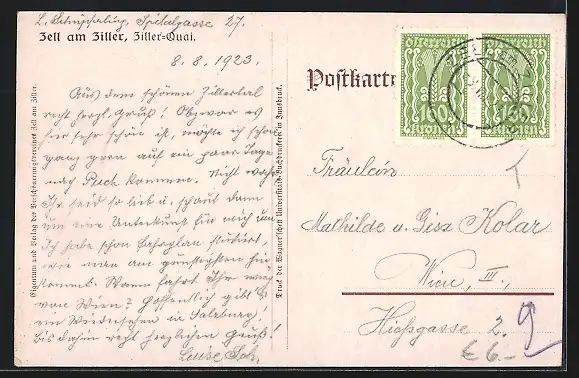 L. Schüpferling, Spitalgasse 27.
Zell am Ziller, Ziller-Quai.
8. 8. 1923.
Aus dem schönen Zillertal
recht herzl. Gruß! Obzwar es
hier sehr schön ist, möchte ich schon
ganz gern auf ein paar Tage
nach Puch kommen. Nicht wahr
Ihr seid so lieb u. schaut dann
um eine Unterkunft für mich um
Ich habe schon Fahrplan studiert,
wie man am günstigsten hin
kommt. Wann fahrt Ihr weg
von Wien? Hoffentlich gibt es
ein Wiedersehen in Salzburg!
bis dahin recht herzlichen Gruß!
Luise Sch.
Eigentum und Verlag des Verschönerungsvereines Zell am Ziller.
Druck der Wagner'schen Universitäts-Buchdruckerei in Innsbruck.
Postkarte
ÖSTERREICH
160
KRONEN
ÖSTERREICH
160
KRONEN
Fräulein
Mathilde u. Gisa Kolar
Wien, III.,
Hießgasse 2.
9
€ 6.-
T